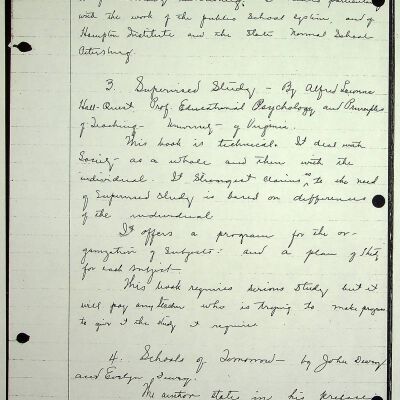 with the work of the public School system, and of
Hampton Institute and the State Normal School
Petersburg.
3. Supervised Study - By Alfred Lawrence
Hall-Quest Prof. Educational Psychology and Principles
of Teaching - University - of Virginia.
This book is technical. It deals with
Society - as a whole and then with the
individual. It Strongest claims as to the need
of Supervised Study is based on differences
of the individual
It offers a program for the or-
ganization of Subjects: and a plan of Study
for each subject -
This book requires serious study but it
will pay any teacher who is trying to make progress
to give it the study it requires
4. Schools of Tomorrow - by John Dewey
and Evelyn Dewey.
The author states in his preface